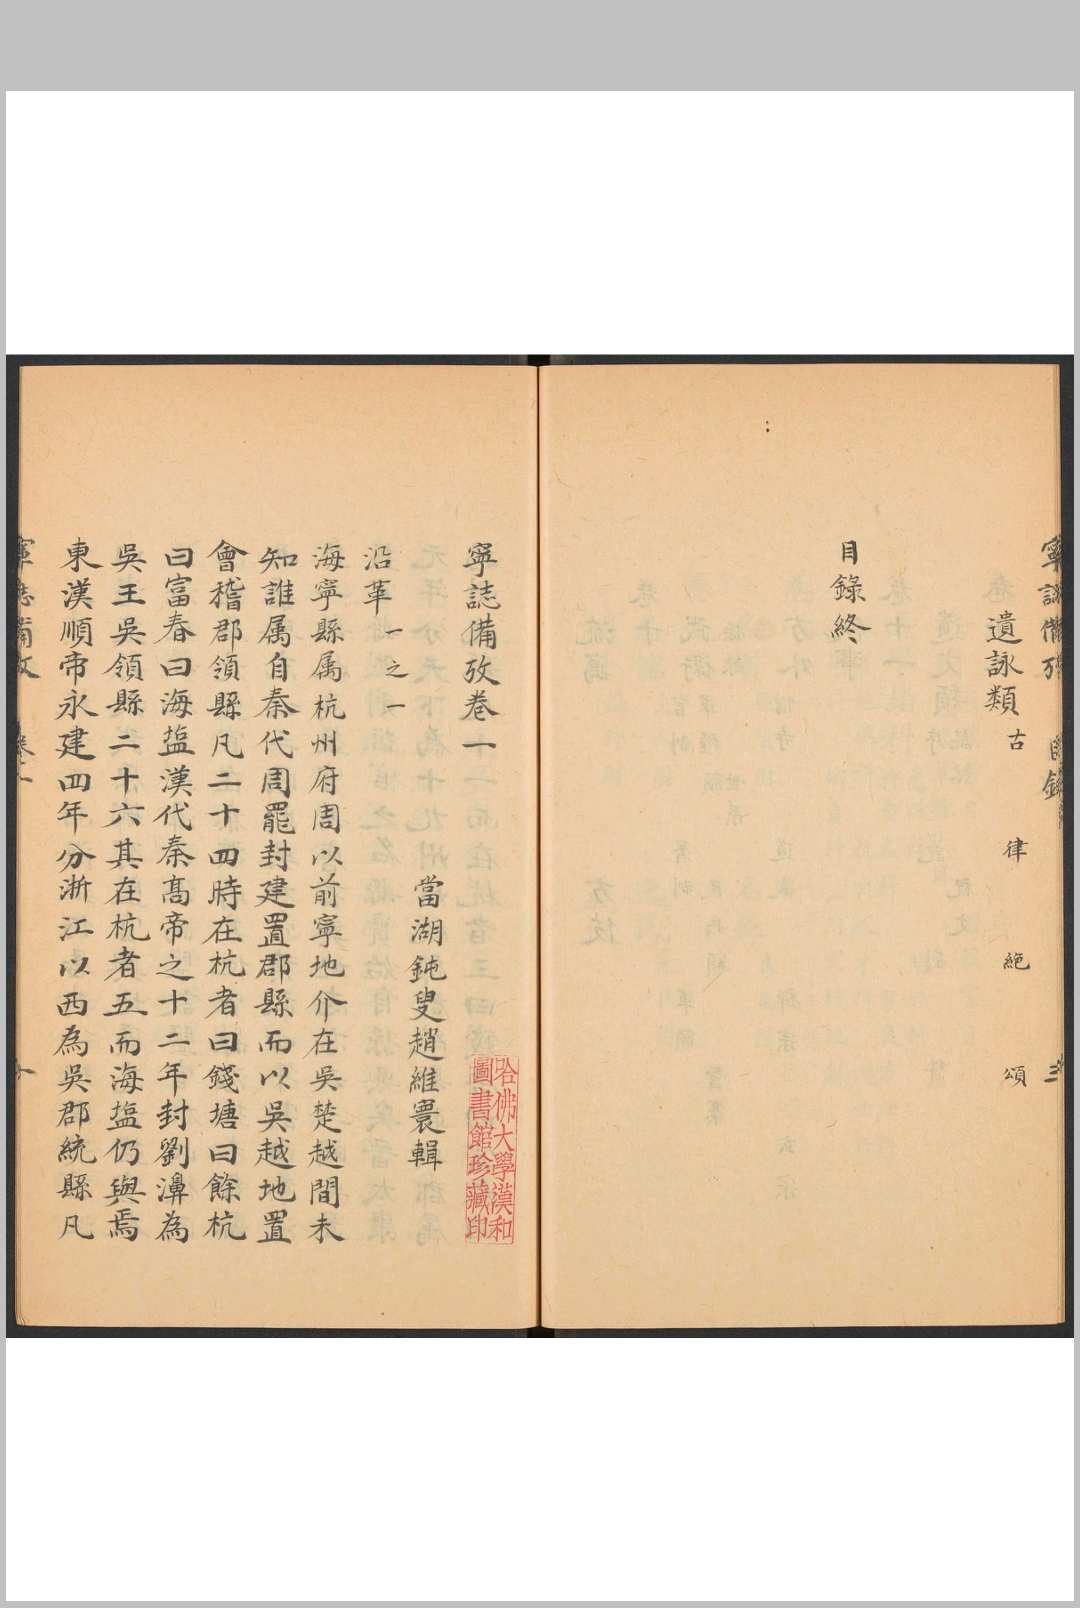 寧誌備攷 目錄 三
遺詠類 古 律 絕 頌
目錄終
寧誌備攷卷一
當湖鈍叟趙維寰輯
哈佛大學漢和
圖書館珍藏印
沿革 一之一
海寧縣属杭州府周以前寧地介在吳楚越間未
知誰属自秦代周罷封建置郡縣而以吳越地置
會稽郡領縣凡二十四時在杭者曰錢塘曰餘杭
曰富春曰海盐漢代秦髙帝之十二年封劉濞為
吳王吳領縣二十六其在杭者五而海盐仍與焉
東漢順帝永建四年分浙江以西為吳郡統縣凡
寧志備攷 卷一